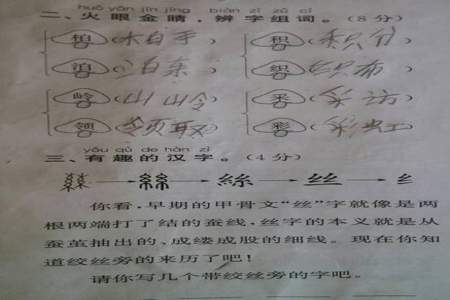 huǒ yǎn jīn jīng biàn zì zǔ cí
二、火眼金睛,辨字组词。(8分)
柏( ) 积(积分)
泊( ) 织(织布)
岭(山山令) 采(采访)
领(领取) 彩(彩虹)
yǒu qù de hàn zì
三、有趣的汉字。(4分)
絲 絲 丝 纟
你看,早期的甲骨文“丝”字就像是两
根两端打了结的蚕线,丝字的本义就是从
蚕茧抽出的、成缕成股的细线。现在你知
道绞丝旁的来历了吧!
请你写几个带绞丝旁的字吧。